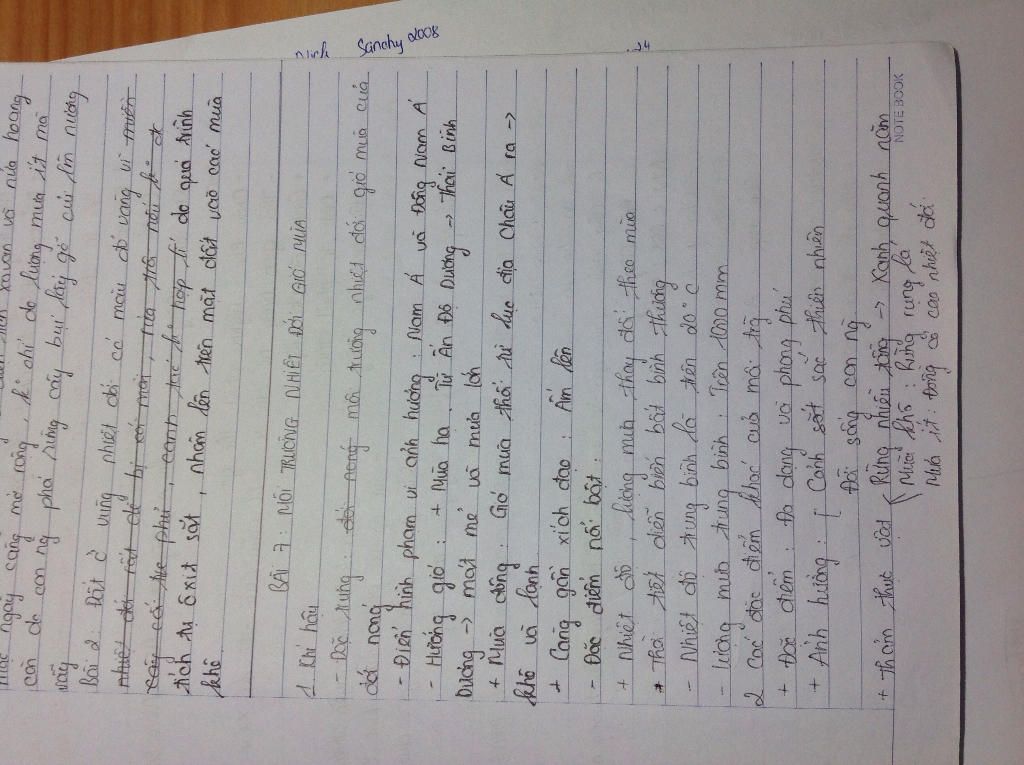 Sanchy 2008
24
ngày càng mở rộng, k chỉ do lượng mưa ít mà
còn do con ng phá rừng cây bụi lấy gỗ củi lên nương
rẫy
Bài 2. Đất ở vùng nhiệt đới có màu đỏ vàng vì miền
nhiệt đới rất dễ bị có mòn, rửa trôi nếu k đc
cây cối che phủ, canh tác k hợp lí do quá trình
tích tụ ôxit sắt, nhôm lên trên mặt đất vào các mùa
khô
BÀI 7: MÔI TRƯỜNG NHIỆT ĐỚI GIÓ MÙA
1 Khí hậu
- Đặc trưng: đới nóng môi trường nhiệt đới gió mùa của
đới nóng
- Điển hình phạm vi ảnh hưởng: Nam Á và Đông Nam Á
- Hướng gió: + Mùa hạ. Từ Ấn Độ Dương -> Thái Bình
Dương -> mát mẻ và mưa lớn
+ Mùa đông: Gió mùa thổi từ lục địa Châu Á ra ->
khô và lạnh
+ Càng gần xích đạo: Ấm lên
- Đặc điểm nổi bật:
+ Nhiệt độ, lượng mưa thay đổi theo mùa
* Thời tiết diễn biến bất bình thường
- Nhiệt độ trung bình là trên 20°C
- Lượng mưa trung bình: Trên 1000 mm
2 Các đặc điểm khác của môi trg
+ Đặc điểm: Đa dạng và phong phú
+ Ảnh hưởng: [ Cảnh sắt sắc thiên nhiên
Đời sống con ng
+ Thảm thực vật { Rừng nhiều tầng -> Xanh quanh năm
Mùa khô: Rừng rụng lá
Mưa ít: Đồng cỏ cao nhiệt đới
NOTEBOOK